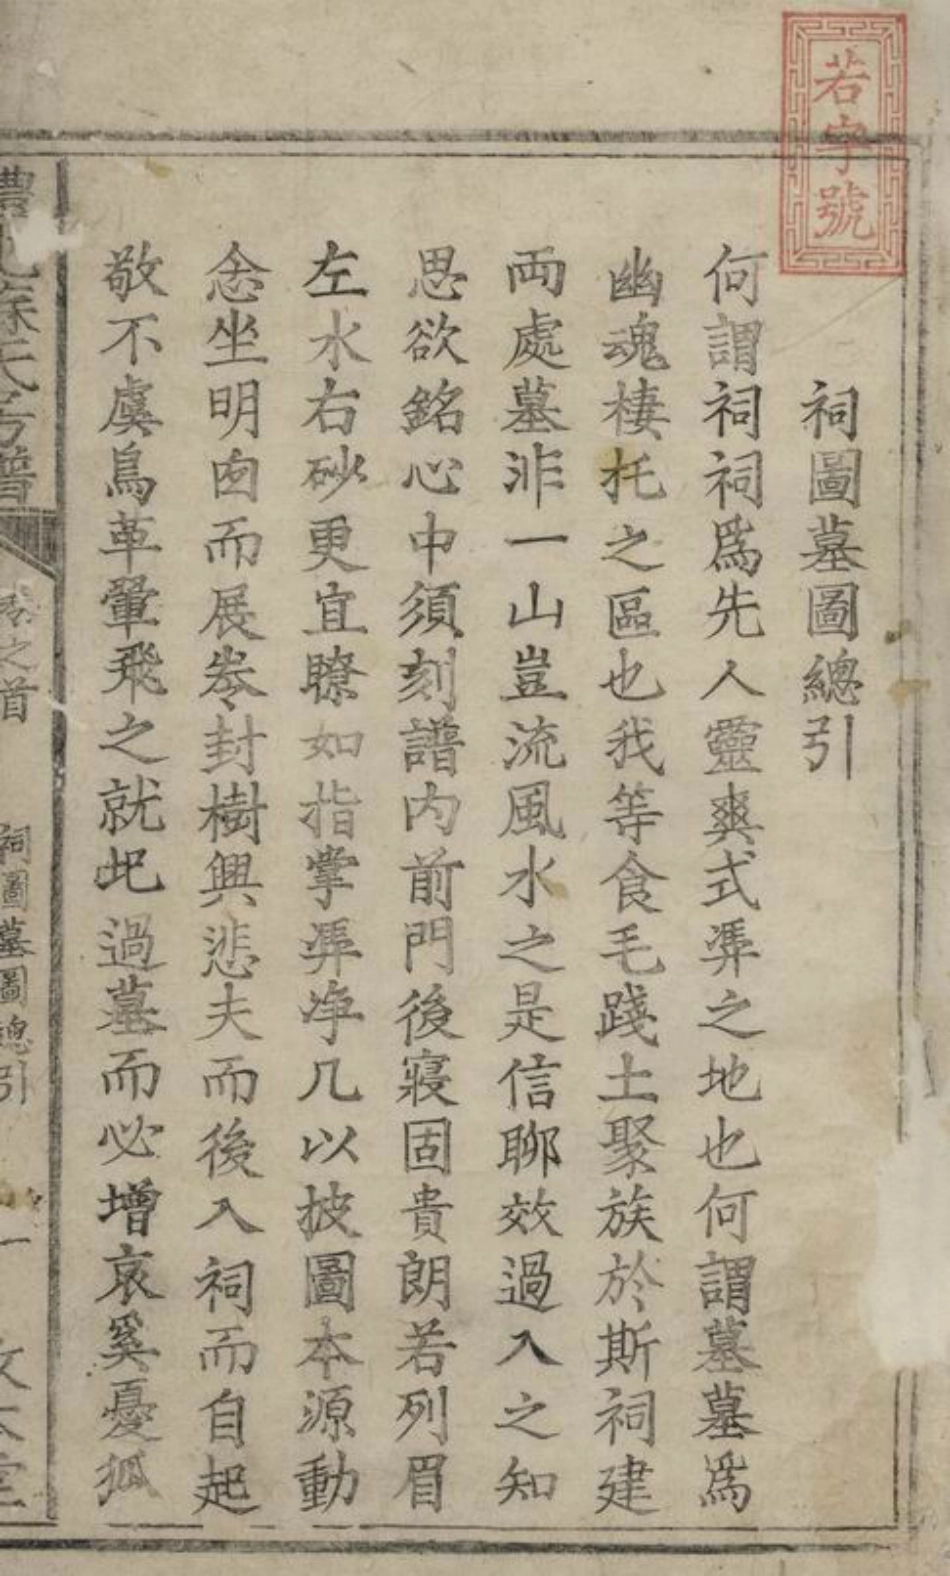 若字號
祠圖墓圖總引
何謂祠祠爲先人靈爽式凴之地也何謂墓墓爲
幽魂棲托之區也我等食毛踐土聚族於斯祠建
両處墓非一山豈流風水之是信聊效過入之知
思欲銘心中須刻譜内前門後寢固貴朗若列眉
左水右砂更宜瞭如指掌凴净几以披圖本源動
念坐明囱而展卷封樹興悲夫而後入祠而自起
敬不虞鳥革翬飛之就圯過墓而必增哀奚憂狐
氏考譜
卷之首
祠圖墓圖總引
一
敦本堂